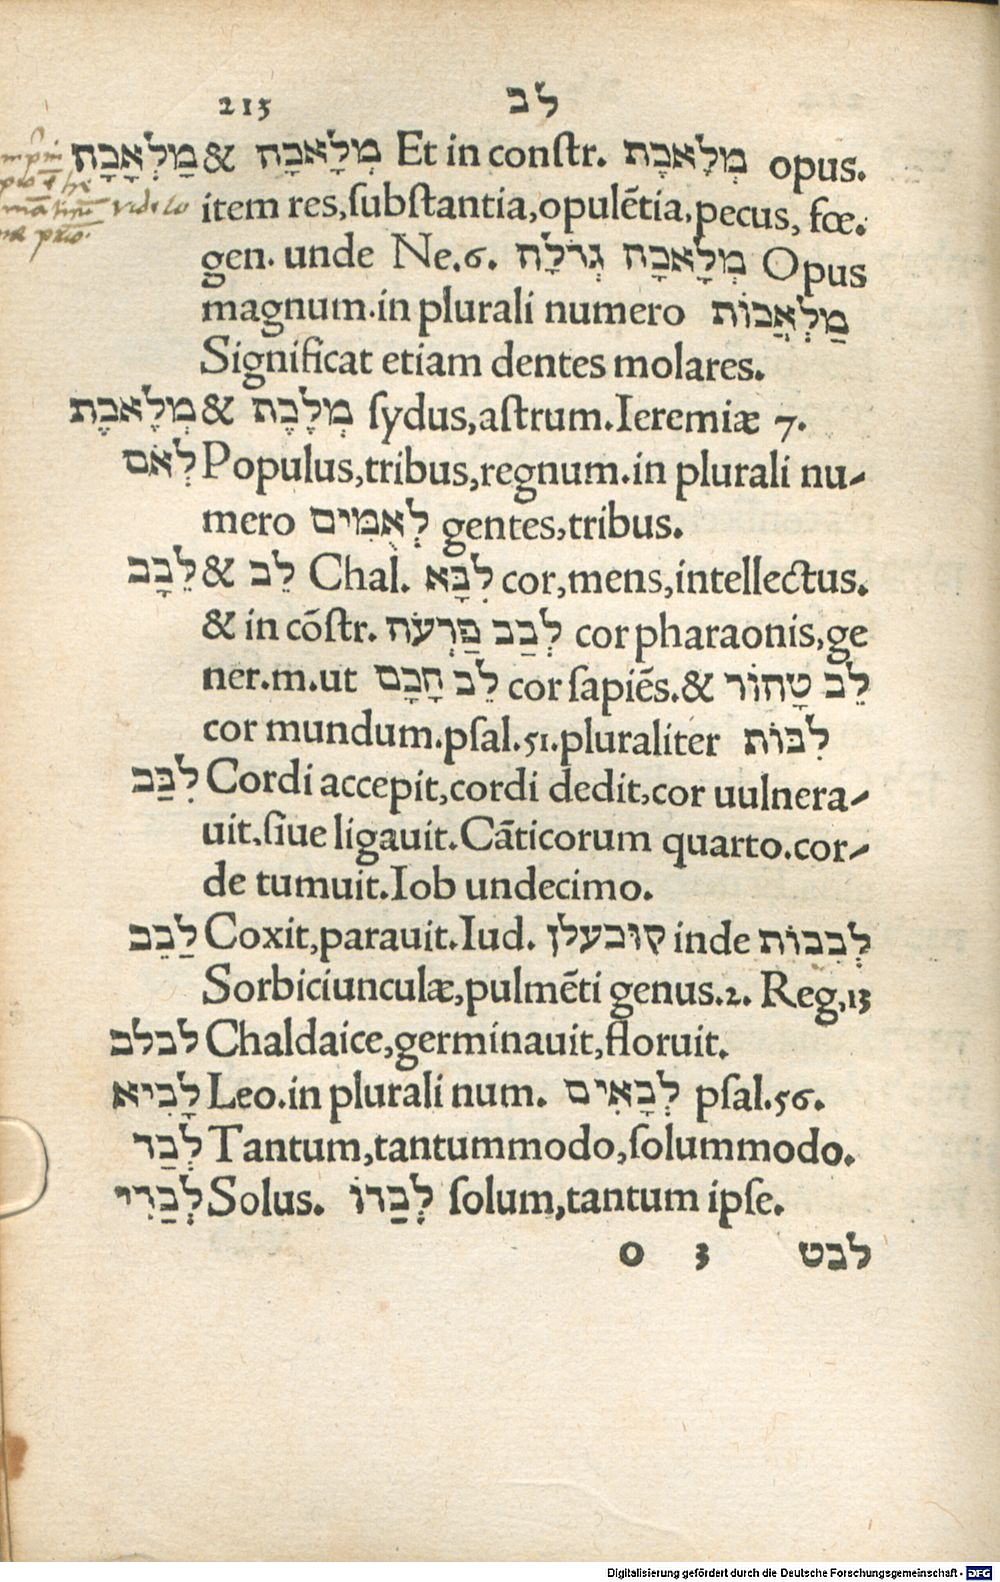 213 לב
מַלְאָכָה & מְלָאכָה Et in conſtr. מְלֶאכֶת opus.
item res,ſubſtantia,opulẽtia,pecus, fœ.
gen. unde Ne.6. מְלָאכָה גְדֹלָה Opus
magnum.in plurali numero מַלְאֲכוֹת
Significat etiam dentes molares.
מְלֶאכֶת & מְלֶכֶת ſydus,aſtrum.Ieremiæ 7.
לְאֹם Populus,tribus,regnum.in plurali nu-
mero לְאֻמִּים gentes,tribus.
לֵבָב & לֵב Chal. לִבָּא cor,mens,intellectus.
& in cõſtr. לְבַב פַּרְעֹה cor pharaonis,ge
ner.m.ut לֵב חָכָם cor ſapiẽs.& לֵב טָהוֹר
cor mundum.pſal.51.pluraliter לִבּוֹת
לִבַּב Cordi accepit,cordi dedit,cor uulnera-
uit,ſiue ligauit.Cãticorum quarto.cor-
de tumuit.Iob undecimo.
לַבֵּב Coxit,parauit.Iud. קובעלן inde לְבִבוֹת
Sorbiciunculæ,pulmẽti genus.2. Reg,13
לבלב Chaldaice,germinauit,floruit.
לָבִיא Leo.in plurali num. לְבָאִים pſal.56.
לְבַד Tantum,tantummodo,ſolummodo.
לְבַדִּי Solus. לְבַדּוֹ ſolum,tantum ipſe.
o 3 לבט
vide lo
Digitalisierung gefördert durch die Deutsche Forschungsgemeinschaft - DFG